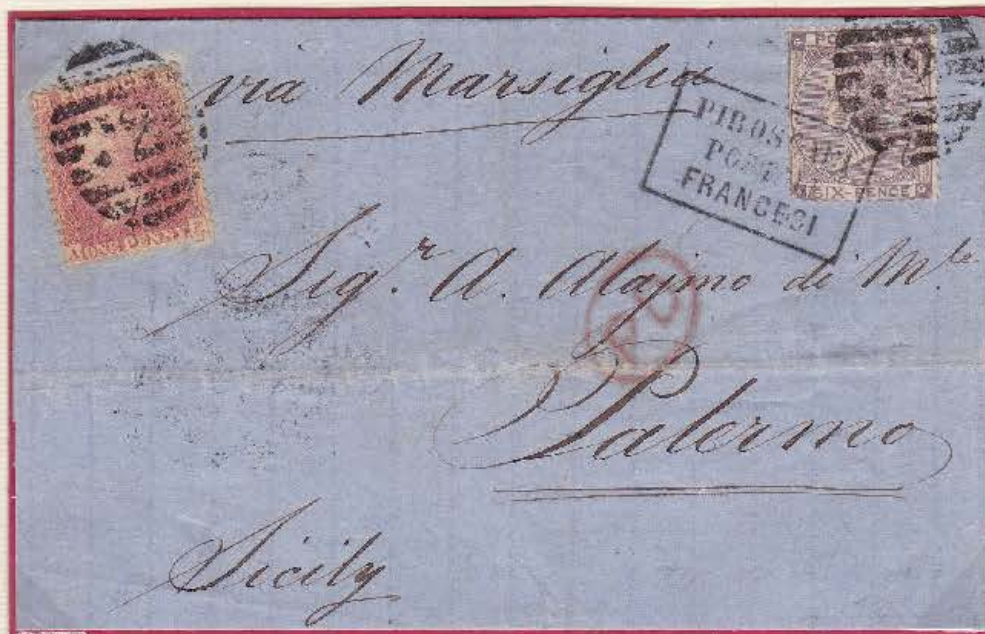 via Marsiglia
PIROS
POST
FRANCESI
SIX-PENCE
PD
Sigr. A. Alajmo di Mle
Palermo
Sicily